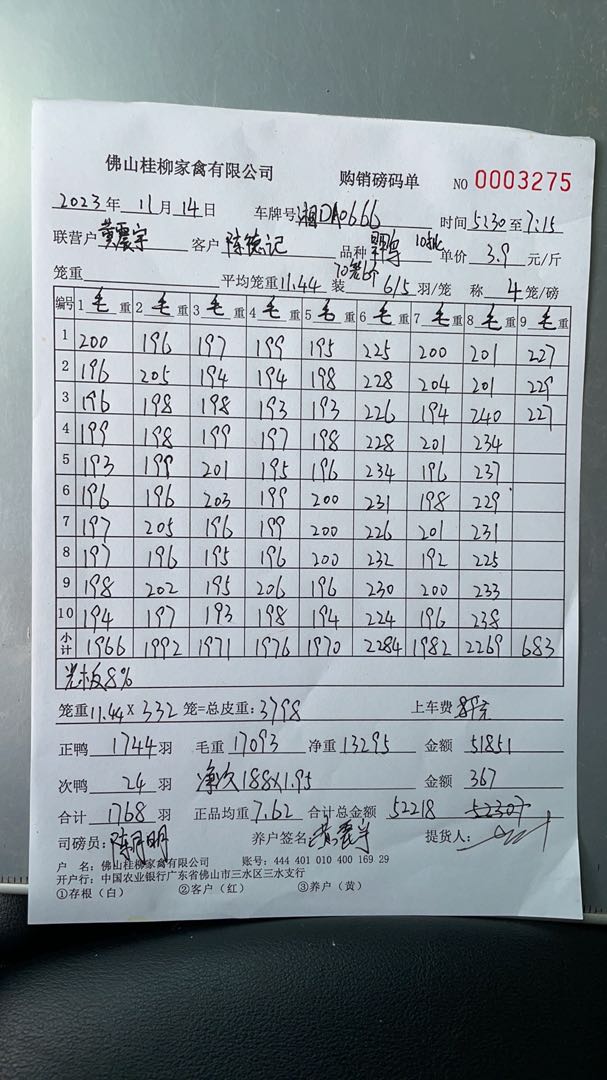 佛山桂柳家禽有限公司 购销磅码单 NO 0003275
2023年 11月14日 车牌号 湘DA0666 时间 5:30 至 7:15
联营户 黄震宇 客户 陈德记 品种 10批 单价 3.9 元/斤
笼重 平均笼重 11.44 装 70笼6个 6/5 羽/笼 称 4 笼/磅
编号 1 毛重 2 毛重 3 毛重 4 毛重 5 毛重 6 毛重 7 毛重 8 毛重 9 毛重
1 200 196 197 199 195 225 200 201 227
2 196 205 194 194 198 228 204 201 229
3 196 198 198 193 193 226 194 240 227
4 199 198 199 197 198 228 201 234
5 193 199 201 195 196 234 196 237
6 196 196 203 199 200 231 198 229
7 197 205 196 199 200 226 201 231
8 197 196 195 196 200 232 192 225
9 198 202 195 206 196 230 200 233
10 194 197 193 198 194 224 196 238
小计 1966 1992 1971 1976 1970 2284 1982 2269 683
光板8%
笼重 11.44 × 332 笼=总皮重: 3798 上车费
正鸭 1744 羽 毛重 17093 净重 13295 金额 51851
次鸭 24 羽 净次 188×1.95 金额 367
合计 1768 羽 正品均重 7.62 合计总金额 52218 52307
司磅员: 陈月明 养户签名: 黄震宇 提货人:
户 名: 佛山桂柳家禽有限公司 账号: 444 401 010 400 169 29
开户行: 中国农业银行广东省佛山市三水区三水支行
①存根（白） ②客户（红） ③养户（黄）